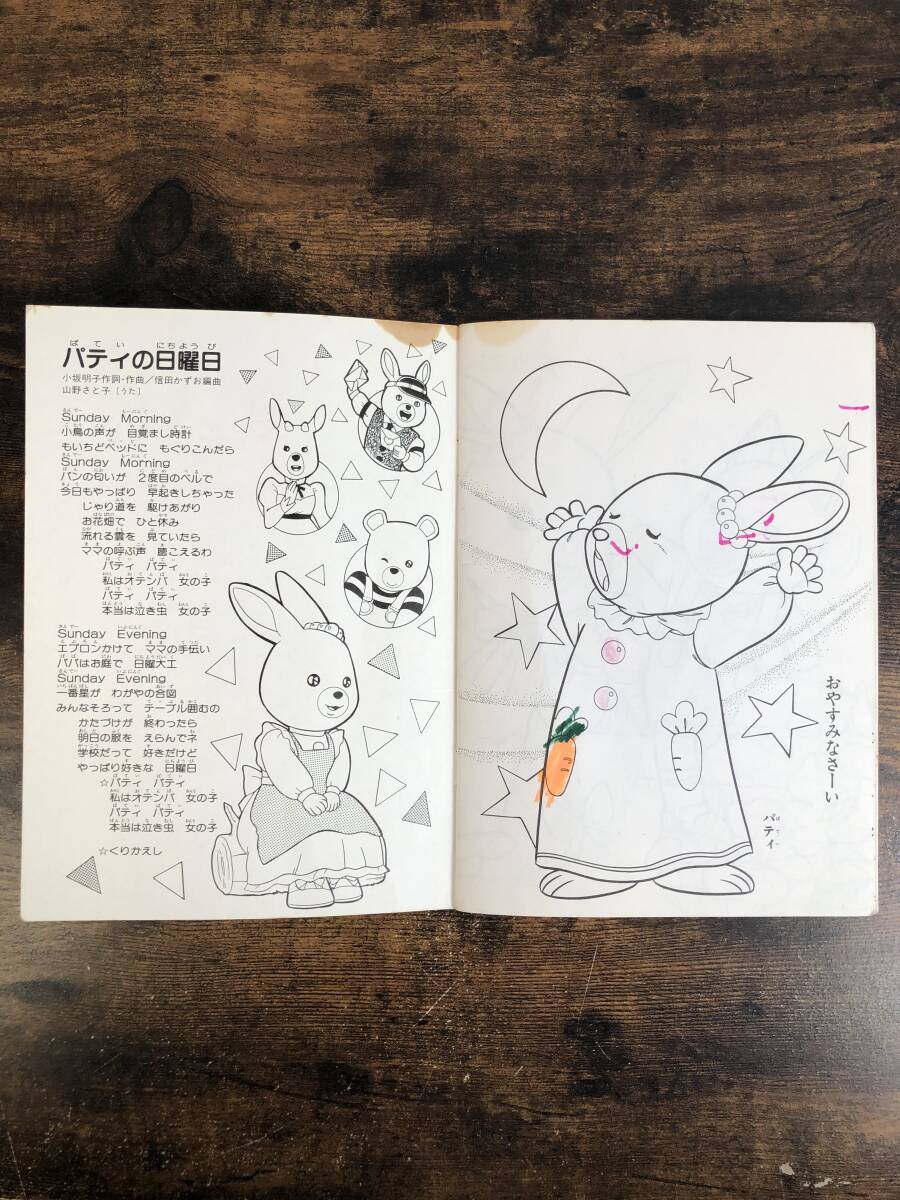 パティの日曜日
小坂明子作詞・作曲／信田かずお編曲
山野さと子（うた）
Sunday Morning
小鳥の声が 目覚まし時計
もいちどベッドに もぐりこんだら
Sunday Morning
パンの匂いが 2度目のベルで
今日もやっぱり 早起きしちゃった
じゃり道を 駆けあがり
お花畑で ひと休み
流れる雲を 見ていたら
ママの呼ぶ声 聴こえるわ
パティ パティ
私はオテンバ 女の子
パティ パティ
本当は泣き虫 女の子
Sunday Evening
エプロンかけて ママの手伝い
パパはお庭で 日曜大工
Sunday Evening
一番星が わがやの合図
みんなそろって テーブル囲むの
かたづけが 終わったら
明日の服を えらんでネ
学校だって 好きだけど
やっぱり好きな 日曜日
☆パティ パティ
私はオテンバ 女の子
パティ パティ
本当は泣き虫 女の子
☆くりかえし
おやすみなさーい
パティ